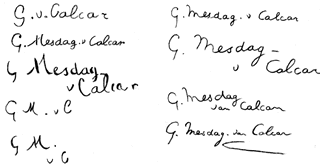 G. v. Calcar
G. Mesdag. v Calcar
G Mesdag-
v Calcar
G M. v C
G M.
v C
G. Mesdag. v Calcar
G. Mesdag-
v Calcar
G. Mesdag
van Calcar
G. Mesdag. van Calcar